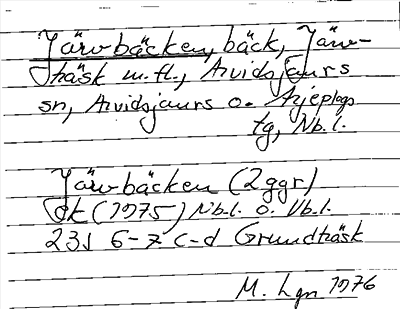 Järvbäcken, bäck, Järv-
träsk m.fl., Arvidsjaurs
sn, Arvidsjaurs o. Arjeplogs
tg, Nb.l.
Järvbäcken (2 ggr)
Ek (1975) Nb.l. o. Vb.l.
23J 6-7 c-d Granträsk
M. Lgn 1976